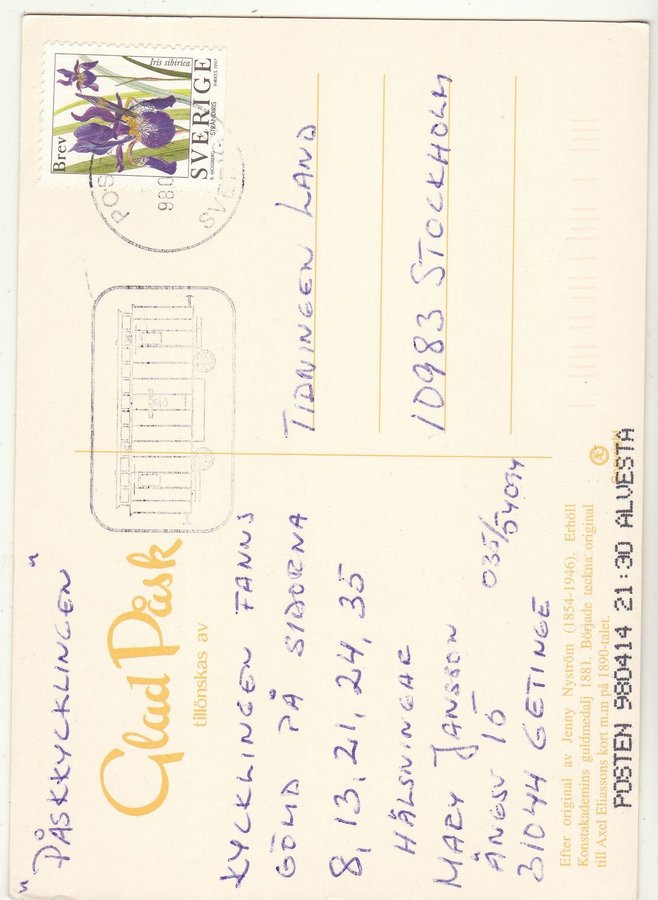 "PÅSKKYCKLINGEN"
Glad Påsk
tillönskas av
KYCKLINGEN FANNS
GÖMD PÅ SIDORNA
8, 13, 21, 24, 35
HÄLSNINGAR
MARY JANSSON
ÄNGSV 15
31044 GETINGE
Efter original av Jenny Nyström (1854-1946). Erhöll
Konstakademins guldmedalj 1881. Började teckna original
till Axel Eliassons kort m.m på 1890-talet.
POSTEN 980414 21:30 ALVESTA
Brev
Iris sibirica
STRANDIRIS
SVERIGE
TIDNINGEN LAND
10983 STOCKHOLM